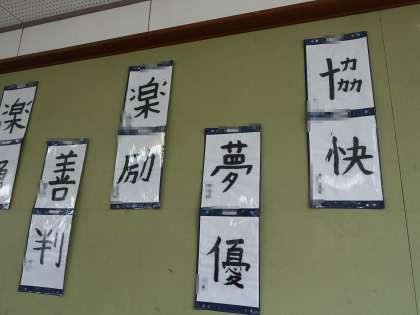 協
快
夢
優
楽
励
善
判
楽